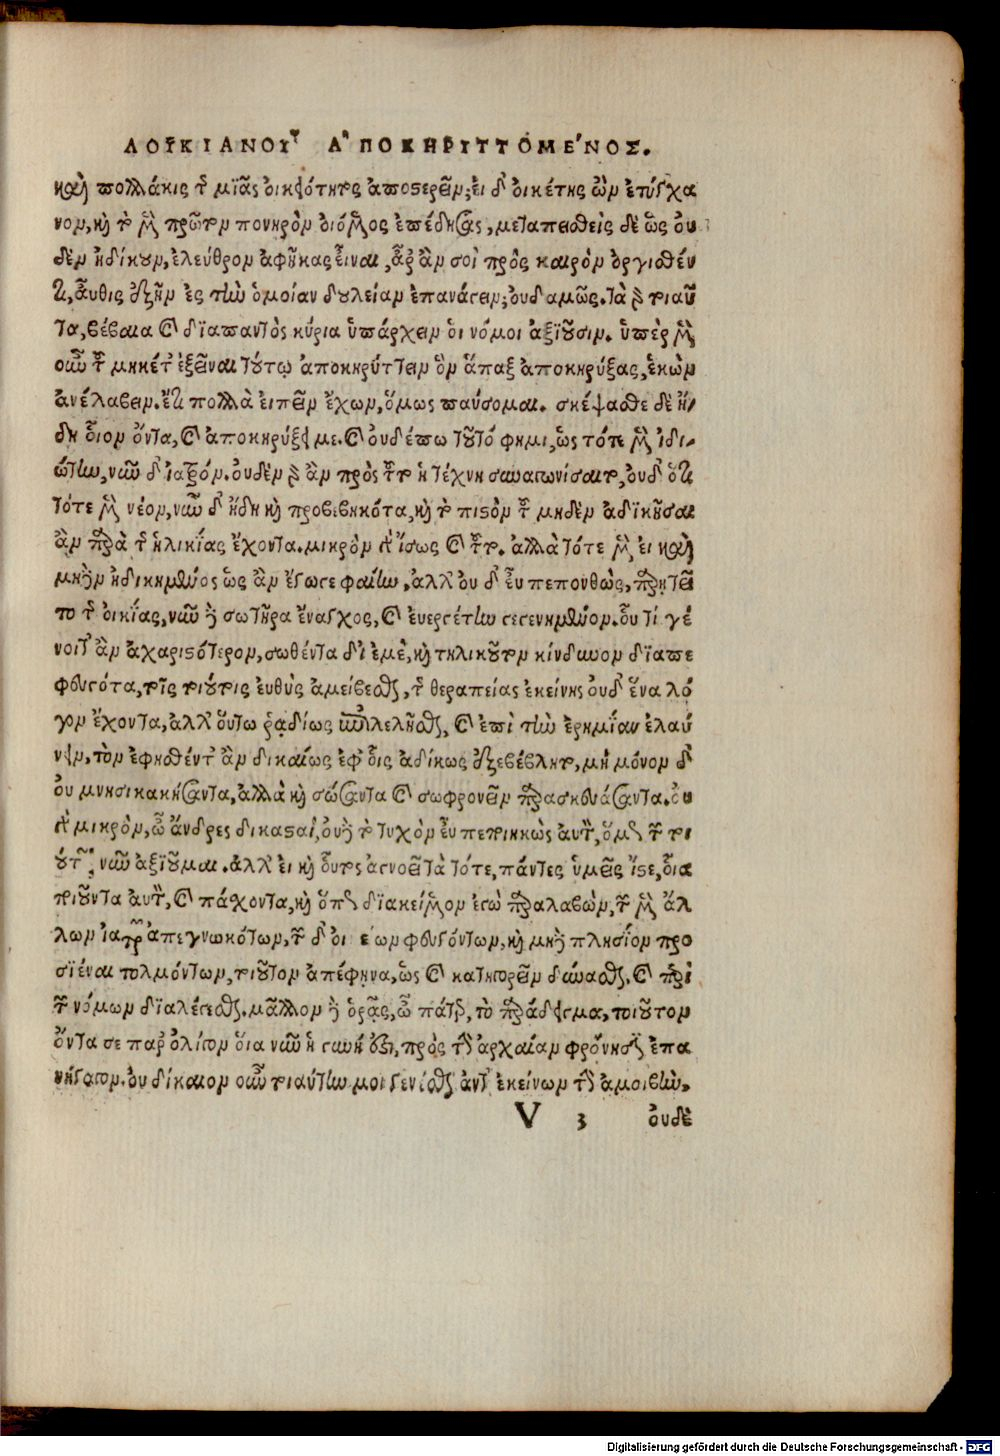 ΛΟΥΚΙΑΝΟΥ ἈΠΟΚΗΡΙΤΤΟΜΕΝΟΣ.
καὶ πολλάκις τῆς μιᾶς οἰκειότητος ἀποστερεῖν; εἰ δ' οἰκέτης ὢν ἐτύγχα
νον, καὶ τὸ μὲν πρῶτον πονηρὸν οἰόμενος ἐπέδησας, μεταπεισθεὶς δὲ ὡς οὐ
δὲν ἠδίκουν, ἐλεύθερον ἀφῆκας εἶναι, ἆρ' ἄν σοι πρὸς καιρὸν ὀργισθέν
τι, αὖθις ἐξῆν ἐς τὴν ὁμοίαν δουλείαν ἐπανάγειν; οὐδαμῶς. τὰ γὰρ τοιαῦ
τα, βέβαια καὶ διαπαντὸς κύρια ὑπάρχειν οἱ νόμοι ἀξιοῦσιν. ὑπὲρ μὲν
οὖν τοῦ μηκέτ' ἐξεῖναι τούτῳ ἀποκηρύττειν ὃν ἅπαξ ἀποκηρύξας, ἑκὼν
ἀνέλαβεν. ἔτι πολλὰ εἰπεῖν ἔχων, ὅμως παύσομαι. σκέψασθε δὲ ἤ-
δη οἷον ὄντα, καὶ ἀποκηρύξει με. καὶ οὐδέπω τοῦτό φημι, ὡς τότε μὲν ἰδι-
ώτην, νῦν δ' ἰατρόν. οὐδὲν γὰρ ἂν πρὸς τοῦτο ἡ τέχνη συναγωνίσαιτο, οὐδ' ὅτι
τότε μὲν νέον, νῦν δ' ἤδη καὶ προβεβηκότα, καὶ τὸ πιστὸν τοῦ μηδὲν ἀδικῆσαι
ἂν παρὰ τῆς ἡλικίας ἔχοντα. μικρὸν γὰρ ἴσως καὶ τοῦτο. ἀλλὰ τότε μὲν εἰ καὶ
μηδὲν ἠδικημένος ὡς ἂν ἔγωγε φαίην, ἀλλ' οὐδ' εὖ πεπονθὼς, παρῃτεῖ
το τῆς οἰκίας, νῦν δὲ σωτῆρα ἔναγχος, καὶ εὐεργέτην γεγενημένον. οὗ τί γέ
νοιτ' ἂν ἀχαριστότερον, σωθέντα δι' ἐμὲ, καὶ τηλικοῦτον κίνδυνον διαπε
φευγότα, τοῖς τοιούτοις εὐθὺς ἀμείβεσθαι, τῆς θεραπείας ἐκείνης οὐδ' ἕνα λό
γον ἔχοντα, ἀλλ' οὕτω ῥᾳδίως ἐπιλελῆσθαι, καὶ ἐπὶ τὴν ἐρημίαν ἐλαύ
νειν, τὸν ἐφησθέντ' ἂν δικαίως ἐφ' οἷς ἀδίκως ἐξεβέβλητο, μὴ μόνον δ'
οὐ μνησικακήσαντα, ἀλλὰ καὶ σώσαντα καὶ σωφρονεῖν παρασκευάσαντα. οὐ
γὰρ μικρὸν, ὦ ἄνδρες δικασταὶ, οὐδὲ τὸ τυχὸν εὖ πεποιηκὼς αὐτὸν, ὅμως τῶν τοι
ούτων νῦν ἀξιοῦμαι. ἀλλ' εἰ καὶ οὗτος ἀγνοεῖ τὰ τότε, πάντες ὑμεῖς ἴστε, οἷα
ποιοῦντα αὐτὸν, καὶ πάσχοντα, καὶ ὅπως διακείμενον ἐγὼ παραλαβὼν, τῶν μὲν ἄλ
λων ἰατρῶν ἀπεγνωκότων, τῶν δ' οἰκείων φευγόντων, καὶ μηδὲ πλησίον προ
σϊέναι τολμόντων, τοιοῦτον ἀπέφηνα, ὡς καὶ κατηγορεῖν δύνασθαι, καὶ περὶ
τῶν νόμων διαλέγεσθαι. μᾶλλον δὲ ὁρᾷς, ὦ πάτερ, τὸ παράδειγμα, τοιοῦτον
ὄντα σε παρ' ὀλίγον οἷα νῦν ἡ γυνή ἐστι, πρὸς τὴν ἀρχαίαν φρόνησιν ἐπα
νήγαγον. οὐ δίκαιον οὖν τοιαύτην μοι γενέσθαι ἀντ' ἐκείνων τὴν ἀμοιβὴν,
V 3 οὐδὲ
Digitalisierung gefördert durch die Deutsche Forschungsgemeinschaft - DFG